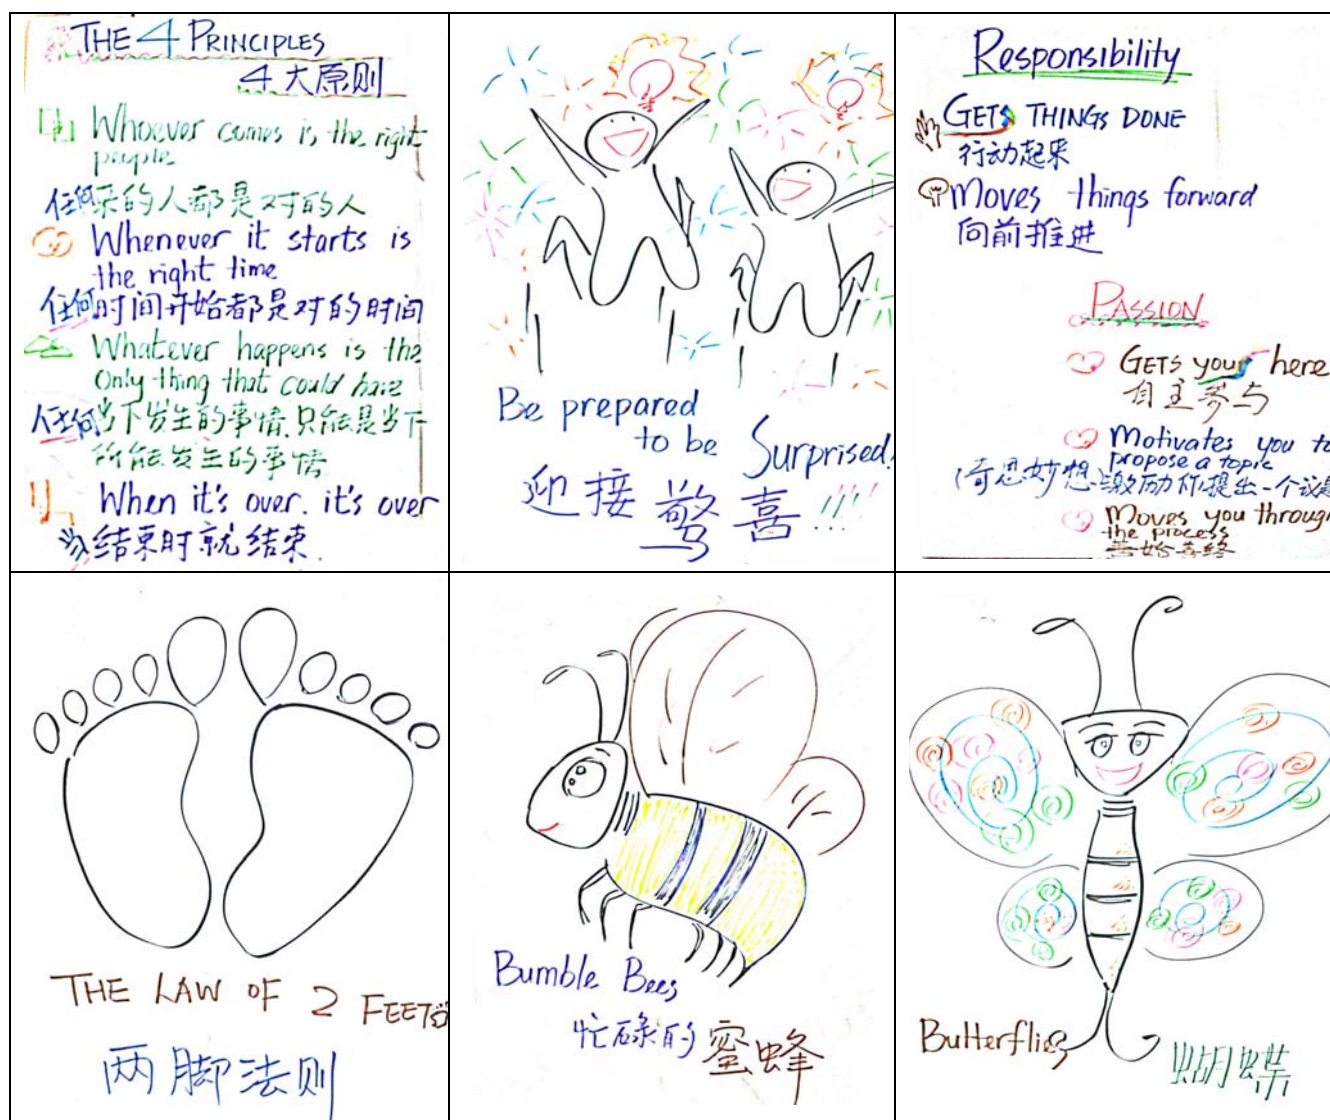 THE 4 PRINCIPLES
4大原则
Whoever comes is the right
people
任何来的人都是对的人
Whenever it starts is
the right time
任何时间开始都是对的时间
Whatever happens is the
Only thing that could have
任何当下发生的事情,只能是当下
所能发生的事情
When it's over, it's over
结束时就结束
Be prepared
to be Surprised!
迎接驚喜!!!!
Responsibility
GETS THINGS DONE
行动起来
Moves things forward
向前推进
PASSION
GETS your here
自主参与
Motivates you to
propose a topic
(奇思妙想)激励你提出一个议题
Moves you through
the process
善始善终
THE LAW OF 2 FEET
两脚法则
Bumble Bees
忙碌的蜜蜂
Butterflies
蝴蝶